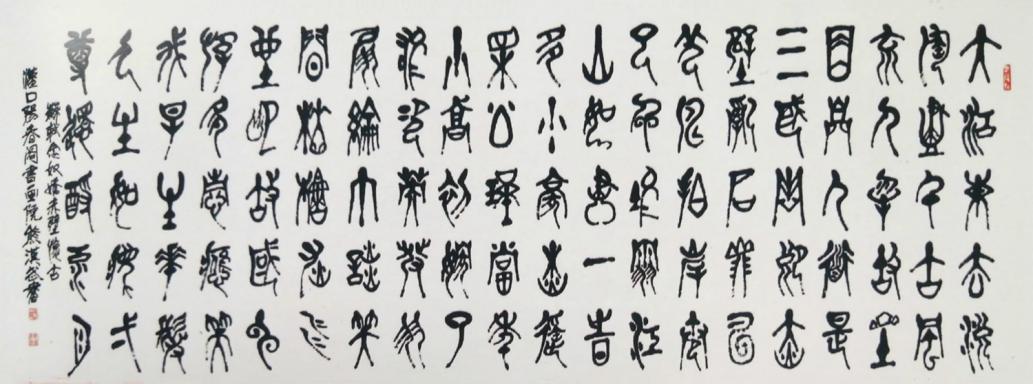 大江東去浪
淘盡千古風
流人物故壘
西邊人道是
三國周郎赤
壁亂石
拍岸捲
起千堆雪江
山如畫一時
多少豪傑遙
想公瑾當年
小喬初嫁了
雄姿英發羽
扇綸巾談笑
間檣櫓灰飛
煙滅故國神
遊多情應笑
我早生華髮
人生如夢一
尊還酹江月
蘇軾念奴嬌赤壁懷古
漢口香閣書画院熊漢書